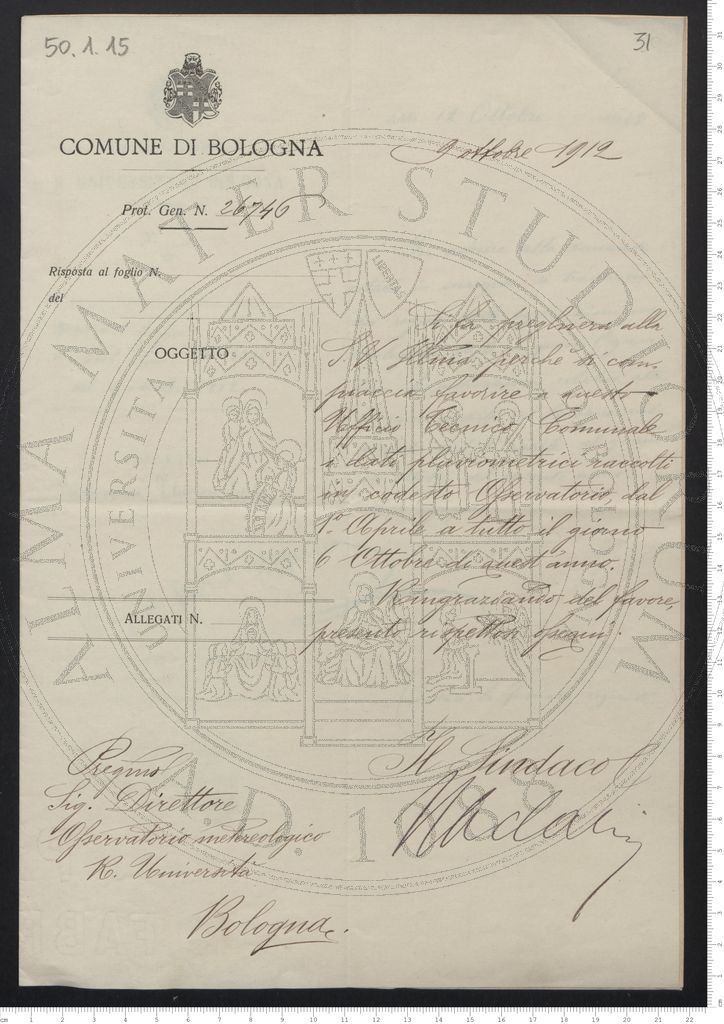 50.1.15
31
COMUNE DI BOLOGNA
9 ottobre 1912
Prot. Gen. N. 26746
Risposta al foglio N.
del
OGGETTO
Si fa preghiera alla
S. V. Illma perchè si com-
piaccia favorire a questo
Ufficio Tecnico Comunale
i dati pluviometrici raccolti
in codesto Osservatorio, dal
1º Aprile a tutto il giorno
6 Ottobre di quest'anno.
Ringraziando del favore
presento rispettosi ossequi.
ALLEGATI N.
Il Sindaco
Pregmo
Sig. Direttore
Osservatorio metereologico
R. Università
Bologna.
ALMA MATER STUDIORUM
UNIVERSITÀ
LIBERTAS
A.D. 1088